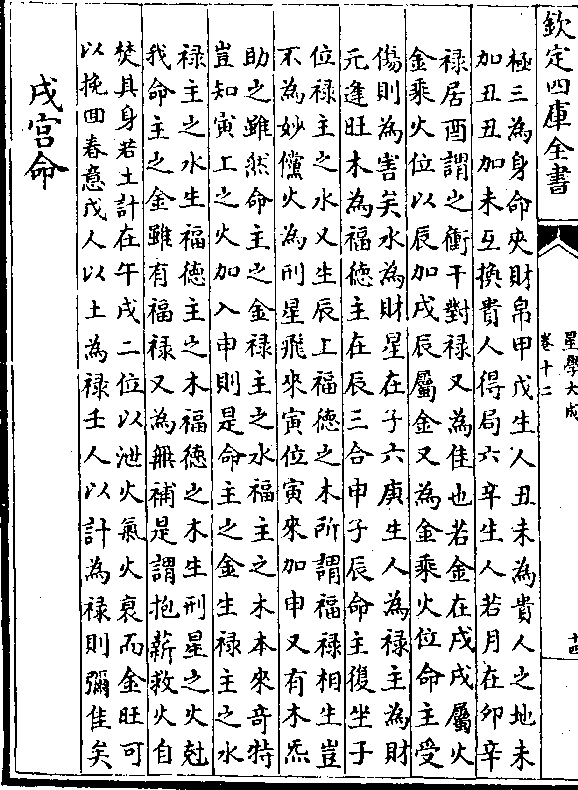 欽定四庫全書
星學大成
卷十二
十四
極三為身命夾財帛甲戊生人丑未為貴人之地未
加丑丑加未互換貴人得局六辛生人若月在卯辛
禄居酉謂之衝干對禄又為佳也若金在戌戌屬火
金乘火位以辰加戌辰屬金又為金乘火位命主受
傷則為害矣水為財星在子六庚生人為禄主為財
元逢旺木為福德主在辰三合申子辰命主復坐子
位禄主之水又生辰上福德之木所謂福禄相生豈
不為妙儻火為刑星飛來寅位寅來加申又有木炁
助之雖然命主之金禄主之水福主之木本來奇特
豈知寅上之火加入申則是命主之金生禄主之水
禄主之水生福德主之木福德之木生刑星之火尅
我命主之金雖有福禄又為無補是謂抱薪救火自
焚其身若土計在午戌二位以泄火氣火衰而金旺可
以挽回春意戊人以土為禄壬人以計為禄則彌佳矣
戌宮命